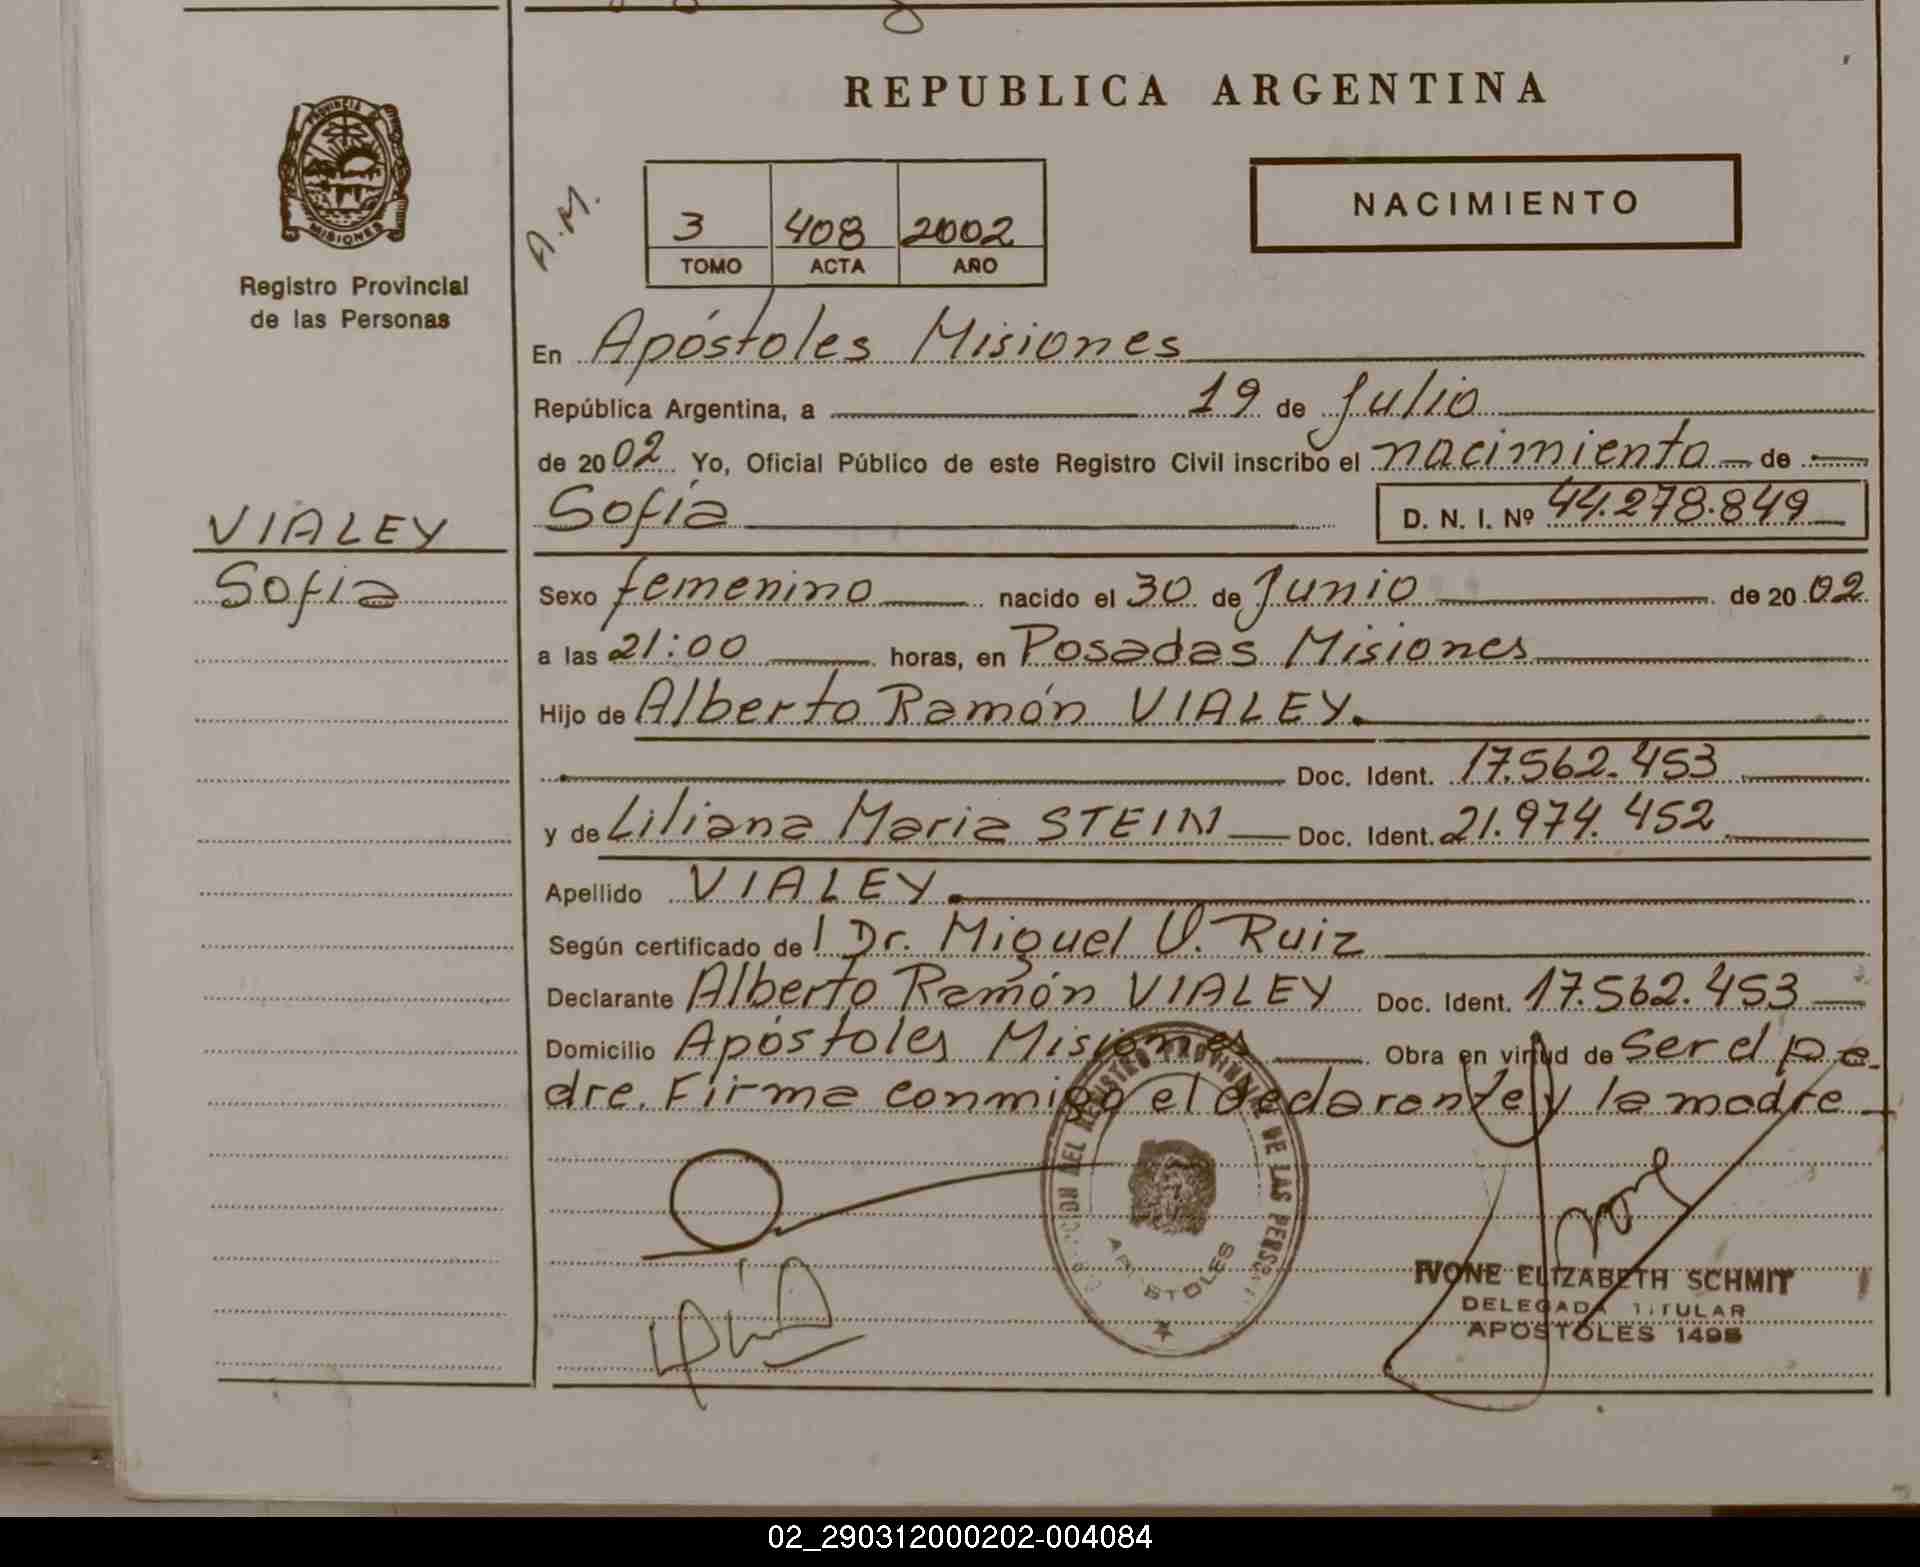 REPUBLICA ARGENTINA
PROVINCIA DE
MISIONES
Registro Provincial
de las Personas
A.M.
3 408 2002
TOMO ACTA AÑO
NACIMIENTO
En Apóstoles Misiones
República Argentina, a 19 de Julio
de 2002 Yo, Oficial Público de este Registro Civil inscribo el nacimiento de
VIALEY
Sofía D. N. I. Nº 44.278.849
Sofia
Sexo femenino nacido el 30 de Junio de 2002
a las 21:00 horas, en Posadas Misiones
Hijo de Alberto Ramón VIALEY.
Doc. Ident. 17.562.453
y de Liliana Maria STEIN Doc. Ident. 21.974.452
Apellido VIALEY.
Según certificado del Dr. Miguel V. Ruiz
Declarante Alberto Ramón VIALEY Doc. Ident. 17.562.453
Domicilio Apóstoles Misiones Obra en virtud de ser el pa-
dre. Firma conmigo el declarante y la madre
DEL REGISTRO PROVINCIAL DE LAS PERSONAS
APOSTOLES
IVONE ELIZABETH SCHMIT
DELEGADA TITULAR
APOSTOLES 1495
02_290312000202-004084